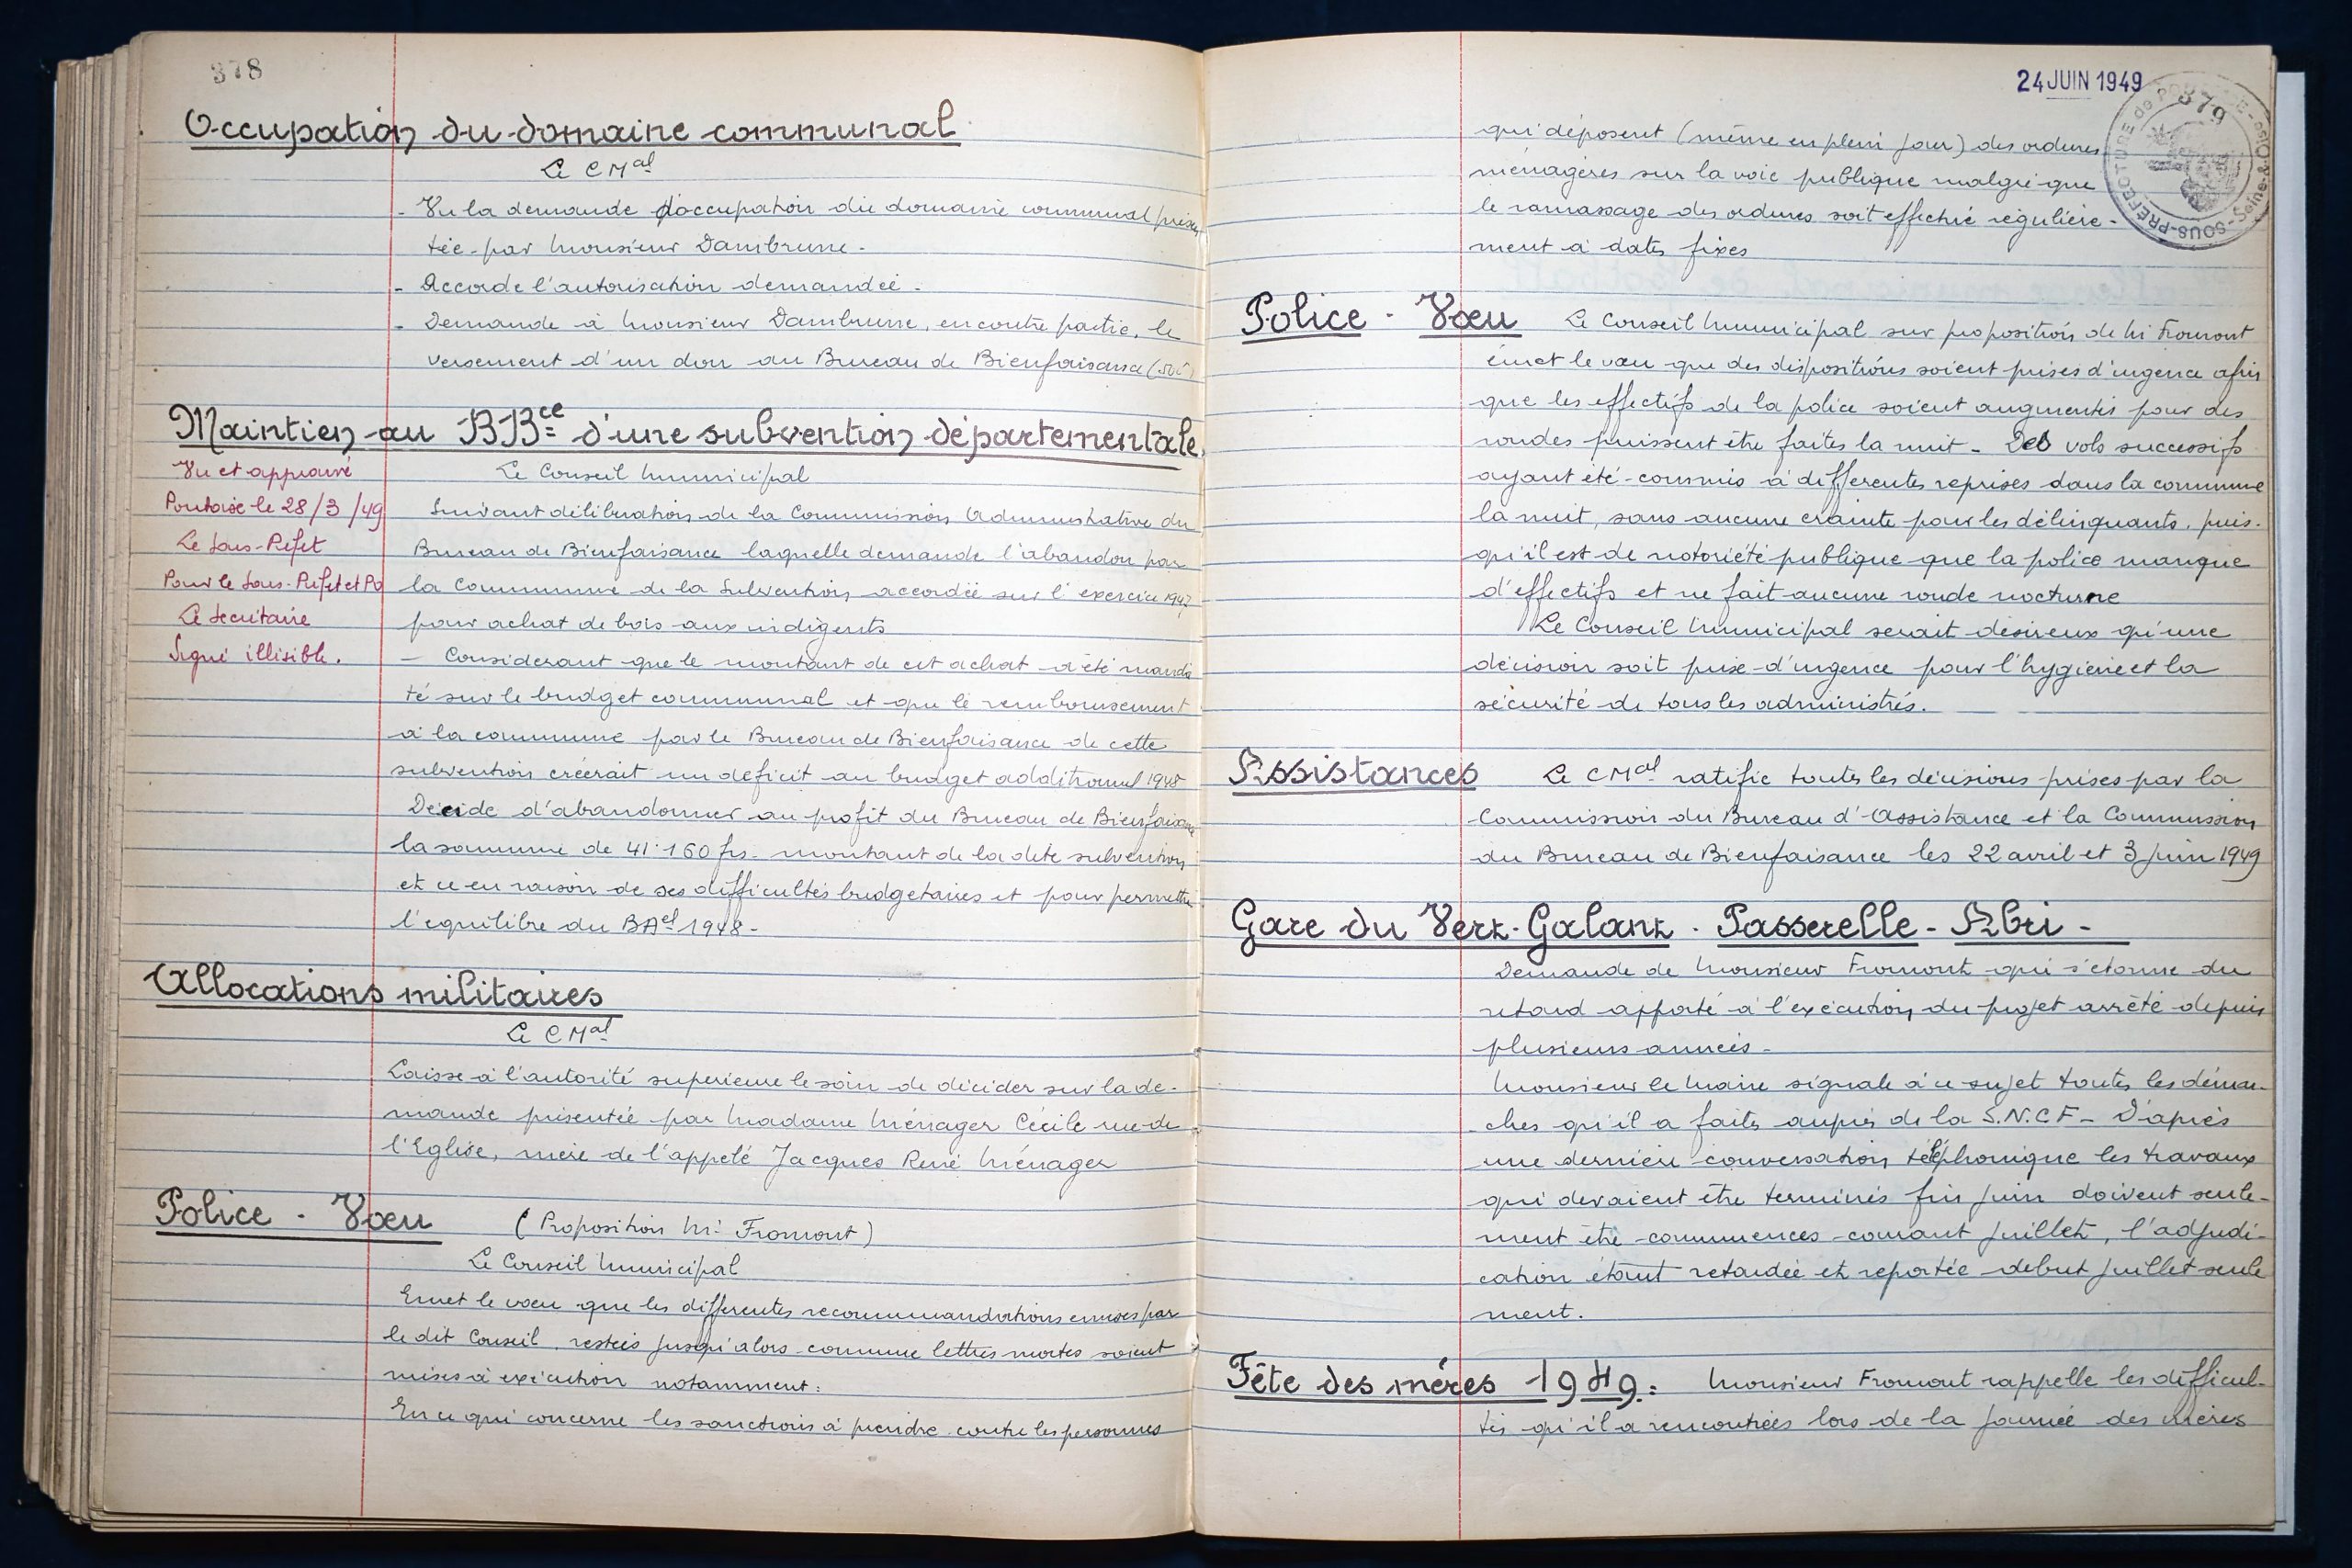 378
Occupation du domaine communal
Le CMal
- Vu la demande d'occupation du domaine communal présen
tée par Monsieur Dambrune -
- Accorde l'autorisation demandée -
- Demande à Monsieur Dambrune, en contre partie, le
versement d'un don au Bureau de Bienfaisance
Maintien au BBce d'une subvention départementale.
Vu et approuvé
Pontoise le 28/3/49
Le Sous-Préfet
Pour le Sous-Préfet et PO
Le Secrétaire
Signé illisible.
Le Conseil Municipal
Suivant délibération de la Commission Administrative du
Bureau de Bienfaisance laquelle demande l'abandon par
la Commune de la Subvention accordée sur l'exercice 1947
pour achat de bois aux indigents
- Considerant que le montant de cet achat a été manda
té sur le budget communal et que le remboursement
à la commune par le Bureau de Bienfaisance de cette
subvention créerait un déficit au budget additionnel 1948
Décide d'abandonner au profit du Bureau de Bienfaisance
la somme de 41.160 frs. montant de la dite subvention
et ce en raison de ses difficultés budgetaires et pour permettre
l'equilibre du BAel 1948 -
Allocations militaires
Le CMal
Laisse à l'autorité superieure le soin de décider sur la de-
mande présentée par Madame Ménager Cécile rue de
l'Eglise, mère de l'appelé Jacques René Ménager
Police - Vœu (Proposition Mr Fromont)
Le Conseil Municipal
Emet le vœu que les differentes recommandations emises par
le dit Conseil, restées jusqu'alors comme lettres mortes soient
mises à exécution notamment :
En ce qui concerne les sanctions à prendre contre les personnes
24 JUIN 1949
379
SOUS-PRÉFECTURE de PONTOISE - Seine-&-Oise
qui déposent (même en plein jour) des ordures
ménagères sur la voie publique malgré que
le ramassage des ordures soit effectué régulière-
ment à dates fixes
Police - Vœu Le Conseil Municipal sur proposition de Mr Fromont
émet le vœu que des dispositions soient prises d'urgence afin
que les effectifs de la police soient augmentés pour des
rondes puissent être faites la nuit - Des vols successifs
ayant été commis à differentes reprises dans la commune
la nuit, sans aucune crainte pour les délinquants, puis-
qu'il est de notoriété publique que la police manque
d'effectifs et ne fait aucune ronde nocturne
Le Conseil Municipal serait désireux qu'une
décision soit prise d'urgence pour l'hygiène et la
sécurité de tous les administrés.
Assistances Le CMal ratifie toutes les décisions prises par la
Commission du Bureau d'Assistance et la Commission
du Bureau de Bienfaisance les 22 avril et 3 juin 1949
Gare du Vert-Galant - Passerelle - Abri -
Demande de Monsieur Fromont qui s'étonne du
retard apporté à l'exécution du projet arrêté depuis
plusieurs années -
Monsieur le Maire signale à ce sujet toutes les démar-
ches qu'il a faites auprès de la S.N.C.F - D'après
une dernière conversation téléphonique les travaux
qui devaient être terminés fin juin doivent seule-
ment être commencés courant juillet, l'adjudi-
cation étant retardée et reportée debut juillet seule
ment.
Fête des mères 1949 : Monsieur Fromont rappelle les difficul-
tés qu'il a rencontrées lors de la journée des mères